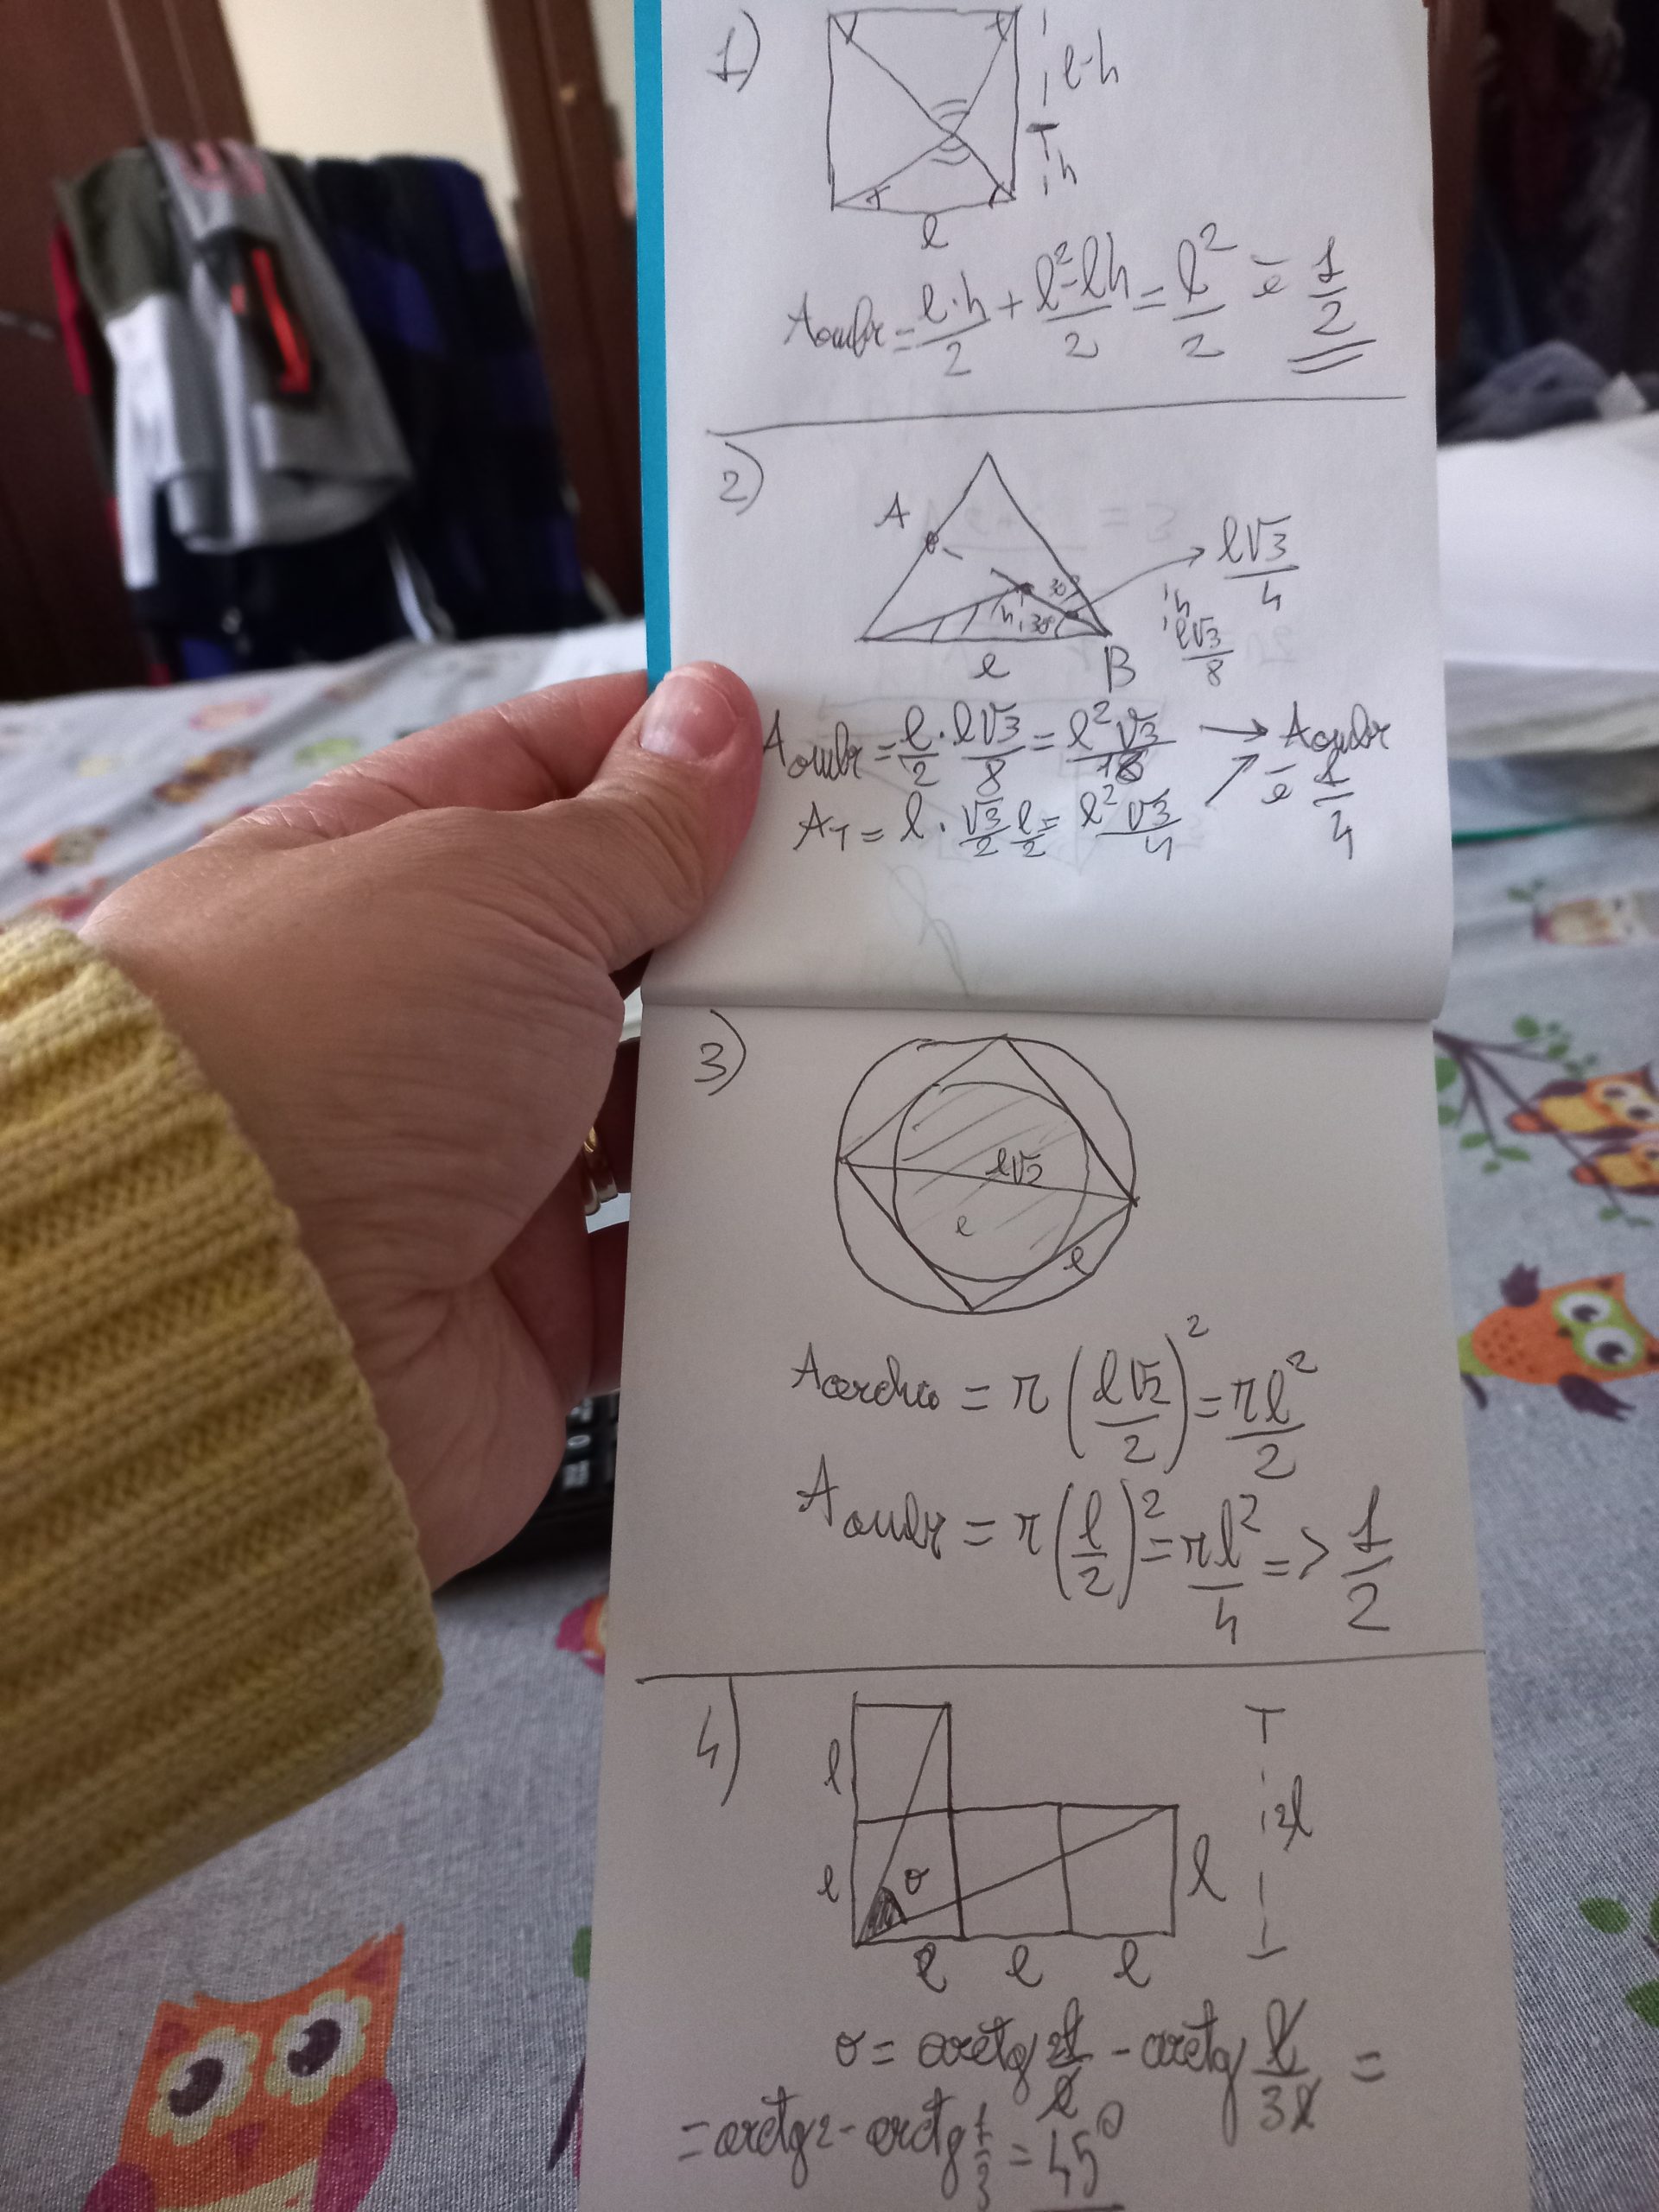 1)
l-h
h
l
Aombr = l·h/2 + l²-lh/2 = l²/2 è 1/2
2)
A
l√3/4
30°
h
30°
h
l√3/8
l
B
Aombr = l/2 · l√3/8 = l²√3/16 → Aombr
AT = l · √3/2 l/2 = l²√3/4 → è 1/4
3)
l√2
l
l
Acerchio = π (l√2/2)² = πl²/2
Aombr = π (l/2)² = πl²/4 => 1/2
4)
l
2l
l
σ
l
l
l
l
σ = arctg 2l/l - arctg l/3l =
= arctg 2 - arctg 1/3 = 45°